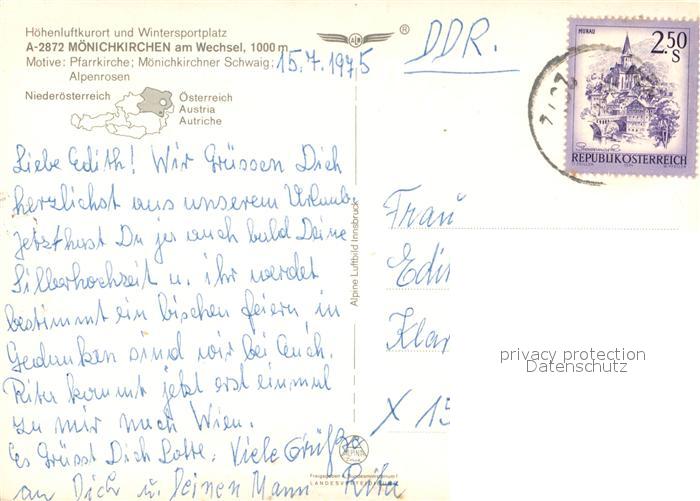 Höhenluftkurort und Wintersportplatz
A-2872 MÖNICHKIRCHEN am Wechsel, 1000 m
Motive: Pfarrkirche; Mönichkirchner Schwaig;
Alpenrosen
15.7.1975
Niederösterreich
Österreich
Austria
Autriche
Liebe Edith! Wir Grüssen Dich
herzlichst aus unserem Urlaub.
Jetzt hast Du ja auch bald Deine
Silberhochzeit u. ihr werdet
bestimmt ein bischen feiern in
Gedanken sind wir bei Euch.
Rita kommt jetzt erst einmal
zu mir nach Wien.
Es Grüsst Dich Lotte. Viele Grüße
an Dich u. Deinen Mann Rita
Alpine Luftbild Innsbruck
ALPINE
LANDESVERTEIDIGUNG
®
DDR.
MURAU
2.50 S
Steiermark
REPUBLIK ÖSTERREICH
Frau
Edi
Kla
X 15
privacy protection
Datenschutz